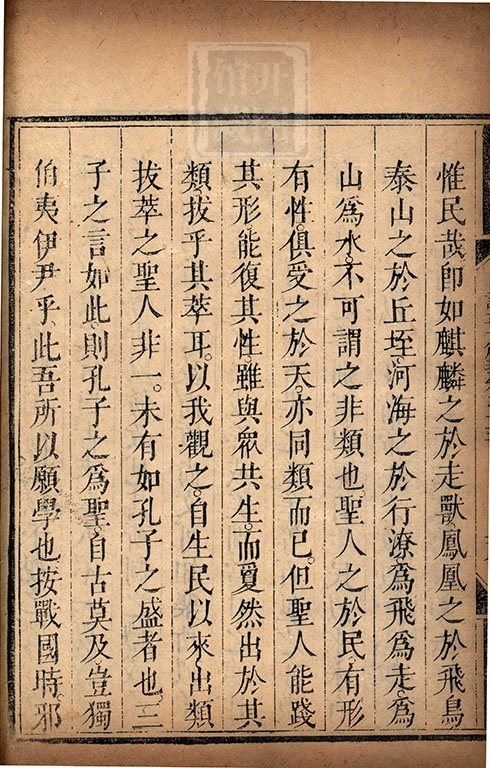 惟民哉即如麒麟之於走獸鳳凰之於飛鳥
泰山之於丘垤河海之於行潦為飛為走為
山為水不可謂之非類也聖人之於民有形
有性俱受之於天亦同類而已但聖人能踐
其形能復其性雖與眾共生而敻然出於其
類拔乎其萃耳以我觀之自生民以來出類
拔萃之聖人非一未有如孔子之盛者也三
子之言如此則孔子之為聖自古莫及豈獨
伯夷伊尹乎此吾所以願學也按戰國時邪